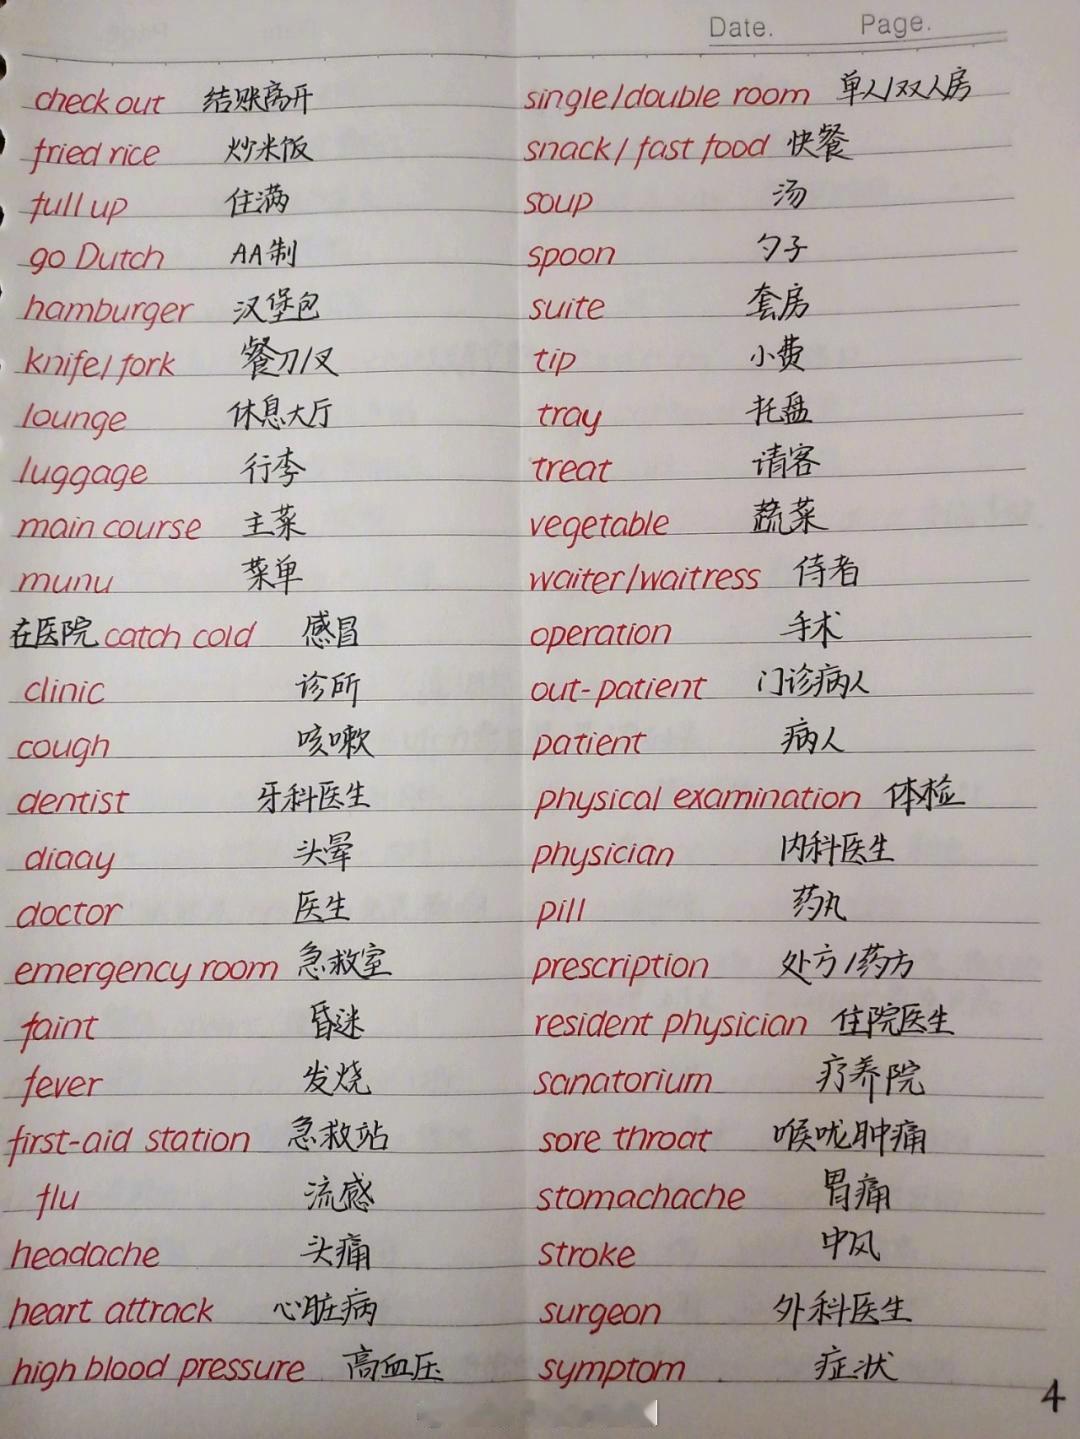 Date. Page.
check out 结账离开
fried rice 炒米饭
full up 住满
go Dutch AA制
hamburger 汉堡包
knife/fork 餐刀/叉
lounge 休息大厅
luggage 行李
main course 主菜
munu 菜单
在医院 catch cold 感冒
clinic 诊所
cough 咳嗽
dentist 牙科医生
diaay 头晕
doctor 医生
emergency room 急救室
faint 昏迷
fever 发烧
first-aid station 急救站
flu 流感
headache 头痛
heart attrack 心脏病
high blood pressure 高血压
single/double room 单人/双人房
snack/fast food 快餐
soup 汤
spoon 勺子
suite 套房
tip 小费
tray 托盘
treat 请客
vegetable 蔬菜
waiter/waitress 侍者
operation 手术
out-patient 门诊病人
patient 病人
physical examination 体检
physician 内科医生
pill 药丸
prescription 处方/药方
resident physician 住院医生
sanatorium 疗养院
sore throat 喉咙肿痛
stomachache 胃痛
stroke 中风
surgeon 外科医生
symptom 症状
4